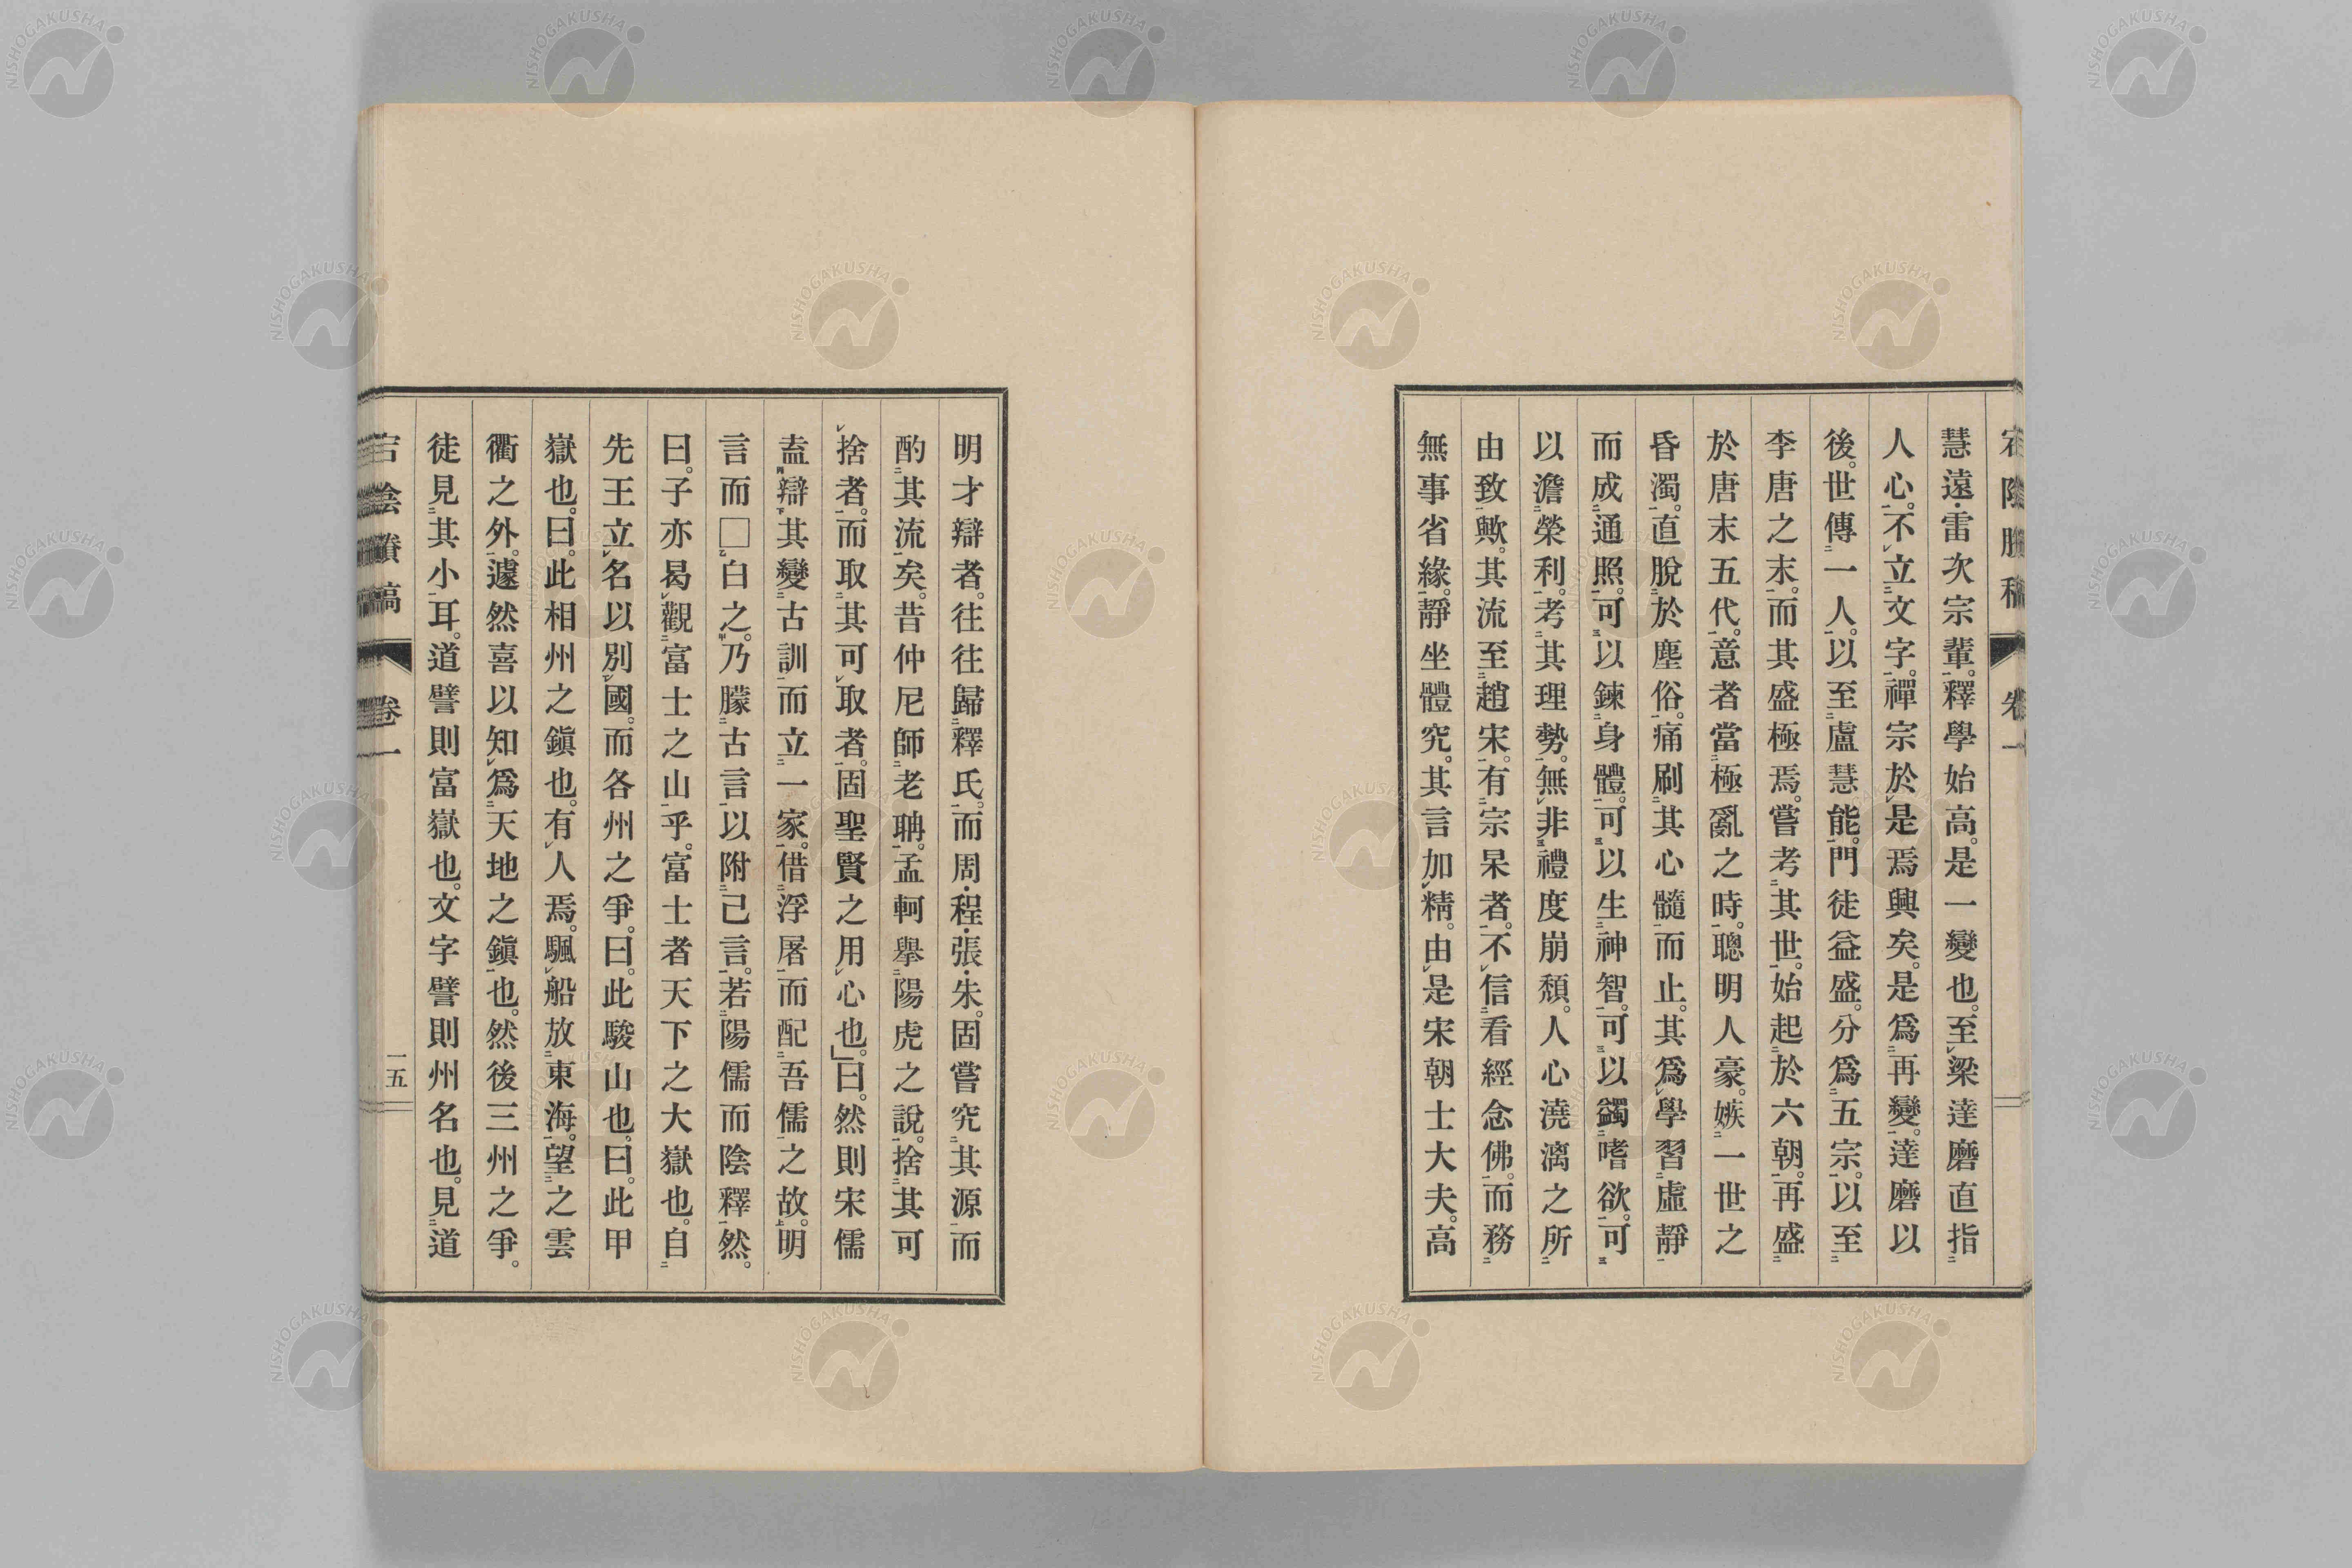 慧遠・雷次宗輩。釋學始高。是一變也。至梁達磨直指
人心。不立文字。禪宗於是焉興矣。是爲再變。達磨以
後。世傳一人。以至盧慧能。門徒益盛。分爲五宗。以至
李唐之末。而其盛極焉。嘗考其世。始起於六朝。再盛
於唐末五代。意者當極亂之時。聰明人豪。嫉一世之
昏濁。直脫於塵俗。痛刷其心髓而止。其爲學習虛靜
而成通照。可以鍊身體。可以生神智。可以蠲嗜欲。可
以澹榮利。考其理勢。無非禮度崩頽。人心澆漓之所
由致歟。其流至趙宋。有宗杲者。不信看經念佛。而務
無事省緣。靜坐體究。其言加精。由是宋朝士大夫。高
明才辯者。往往歸釋氏。而周・程・張・朱。固嘗究其源而
酌其流矣。昔仲尼師老聃。孟軻擧陽虎之說。捨其可
捨者。而取其可取者。固聖賢之用心也。」曰。然則宋儒
盍辯其變古訓而立一家。借浮屠而配吾儒之故。明
言而□白之。乃朦古言以附己言。若陽儒而陰釋然。
曰。子亦曷觀富士之山乎。富士者天下之大嶽也。自
先王立名以別國。而各州之爭。曰。此駿山也。曰。此甲
嶽也。曰。此相州之鎭也。有人焉。颿船放東海。望之雲
衢之外。遽然喜以知爲天地之鎭也。然後三州之爭。
徒見其小耳。道譬則富嶽也。文字譬則州名也。見道
卷一
一五
NISHOGAKUSHA